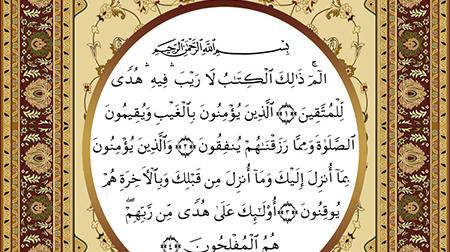 بِسْمِ اللَّهِ الرَّحْمَٰنِ الرَّحِيمِ
الٓمٓ ذَٰلِكَ الْكِتَابُ لَا رَيْبَ ۛ فِيهِ ۛ هُدًى
لِّلْمُتَّقِينَ ﴿٢﴾ الَّذِينَ يُؤْمِنُونَ بِالْغَيْبِ وَيُقِيمُونَ
الصَّلَوٰةَ وَمِمَّا رَزَقْنَاهُمْ يُنفِقُونَ ﴿٣﴾ وَالَّذِينَ يُؤْمِنُونَ
بِمَا أُنزِلَ إِلَيْكَ وَمَا أُنزِلَ مِن قَبْلِكَ وَبِالْآخِرَةِ هُمْ
يُوقِنُونَ ﴿٤﴾ أُولَٰئِكَ عَلَىٰ هُدًى مِّن رَّبِّهِمْ ۖ
هُمُ الْمُفْلِحُونَ